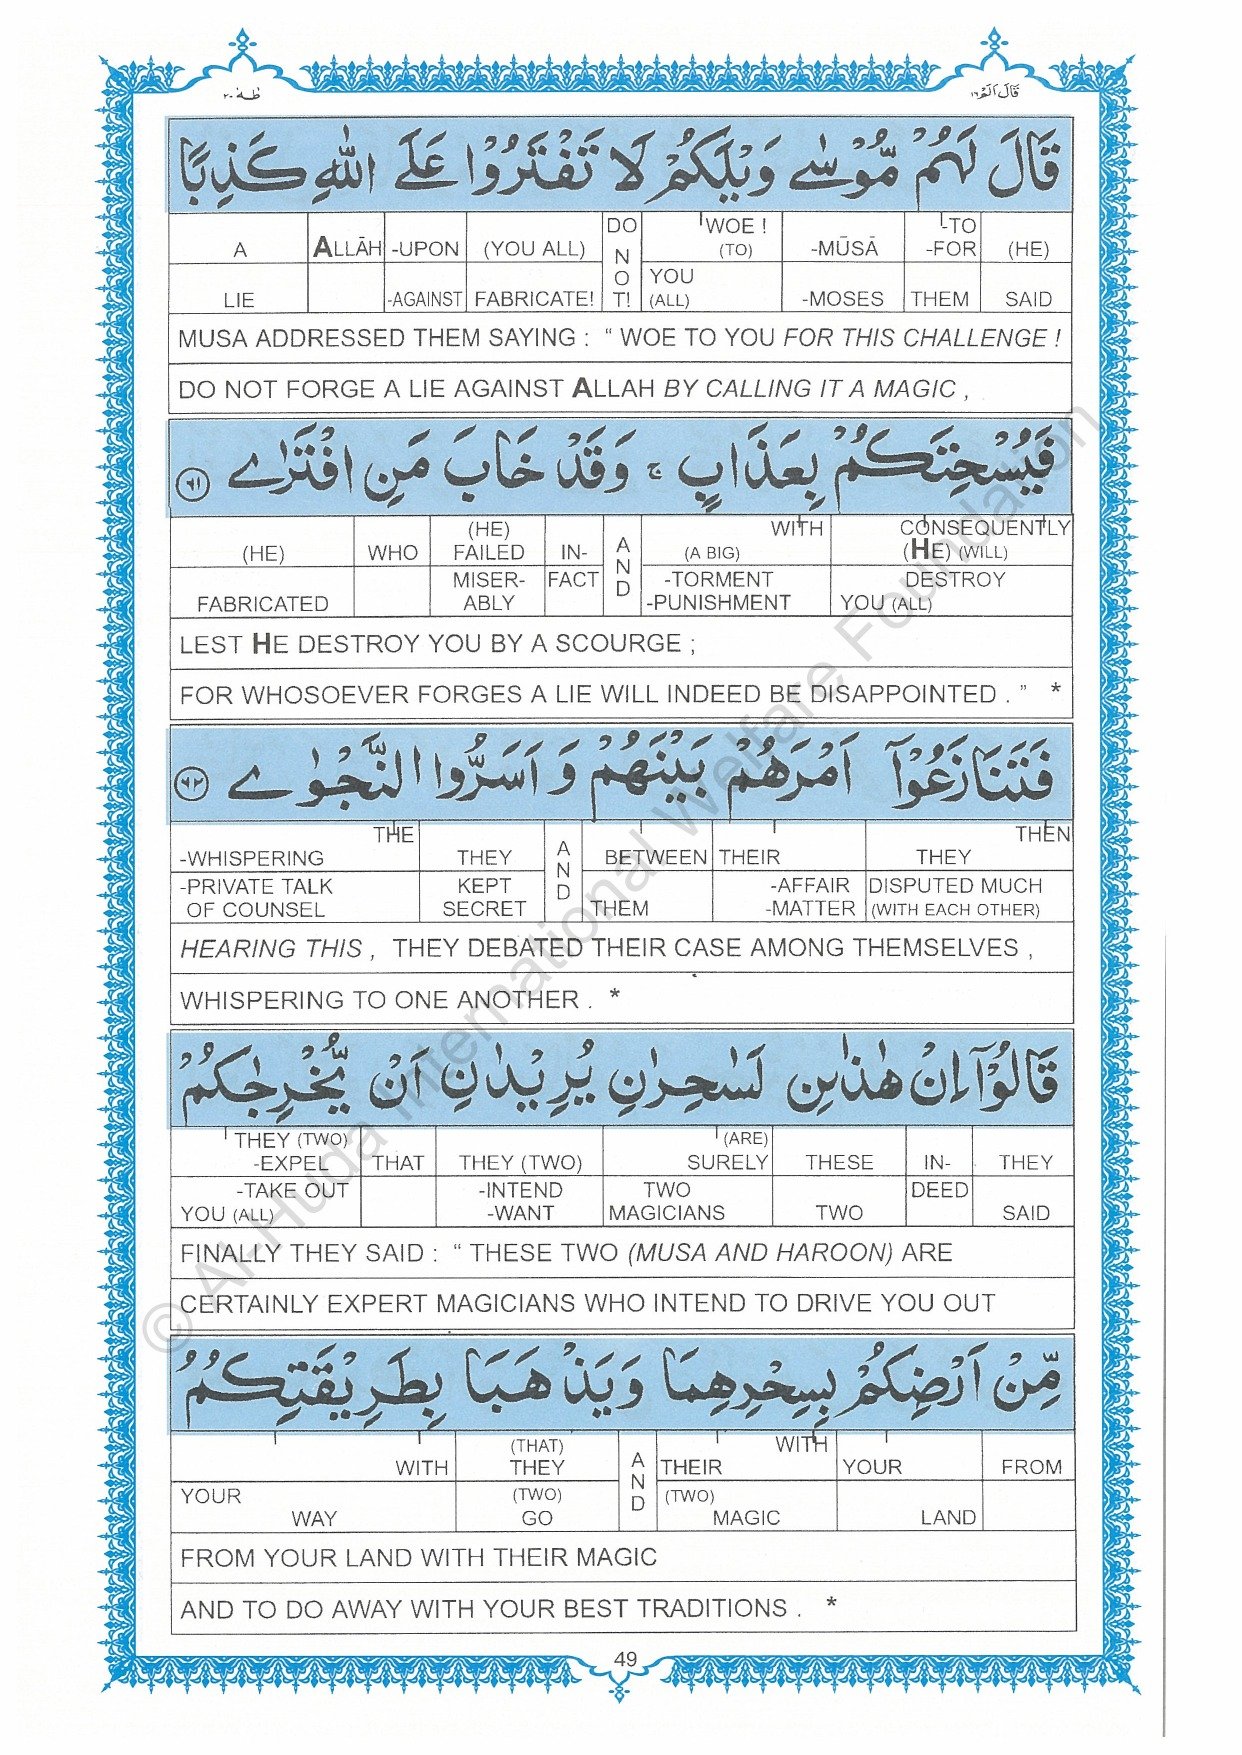 قَالَ اَلَمْ ١٦
طٰهٰ ٢٠
قَالَ لَهُمْ مُّوْسٰى وَيْلَكُمْ لَا تَفْتَرُوْا عَلَى اللّٰهِ كَذِبًا
A ALLĀH -UPON (YOU ALL) DO NOT! WOE ! (TO) -MŪSĀ -TO -FOR (HE)
LIE -AGAINST FABRICATE! YOU (ALL) -MOSES THEM SAID
MUSA ADDRESSED THEM SAYING : “ WOE TO YOU FOR THIS CHALLENGE !
DO NOT FORGE A LIE AGAINST ALLAH BY CALLING IT A MAGIC ,
فَيُسْحِتَكُمْ بِعَذَابٍ ۚ وَقَدْ خَابَ مَنِ افْتَرٰى ٦١
(HE) WHO (HE) FAILED IN- AND WITH (A BIG) CONSEQUENTLY (HE) (WILL)
FABRICATED MISER- ABLY FACT -TORMENT -PUNISHMENT DESTROY YOU (ALL)
LEST HE DESTROY YOU BY A SCOURGE ;
FOR WHOSOEVER FORGES A LIE WILL INDEED BE DISAPPOINTED . ” *
فَتَنَازَعُوْٓا اَمْرَهُمْ بَيْنَهُمْ وَاَسَرُّوا النَّجْوٰى ٦٢
THE -WHISPERING THEY AND BETWEEN THEIR THEN THEY
-PRIVATE TALK OF COUNSEL KEPT SECRET THEM -AFFAIR -MATTER DISPUTED MUCH (WITH EACH OTHER)
HEARING THIS , THEY DEBATED THEIR CASE AMONG THEMSELVES ,
WHISPERING TO ONE ANOTHER . *
قَالُوْٓا اِنْ هٰذٰنِ لَسٰحِرٰنِ يُرِيْدٰنِ اَنْ يُّخْرِجٰكُمْ
THEY (TWO) -EXPEL THAT THEY (TWO) (ARE) SURELY THESE IN- THEY
-TAKE OUT YOU (ALL) -INTEND -WANT TWO MAGICIANS TWO DEED SAID
FINALLY THEY SAID : “ THESE TWO (MUSA AND HAROON) ARE
CERTAINLY EXPERT MAGICIANS WHO INTEND TO DRIVE YOU OUT
مِّنْ اَرْضِكُمْ بِسِحْرِهِمَا وَيَذْهَبَا بِطَرِيْقَتِكُمُ
WITH (THAT) THEY AND THEIR WITH YOUR FROM
YOUR WAY (TWO) GO (TWO) MAGIC LAND
FROM YOUR LAND WITH THEIR MAGIC
AND TO DO AWAY WITH YOUR BEST TRADITIONS . *
49
© Al-Huda International Welfare Foundation